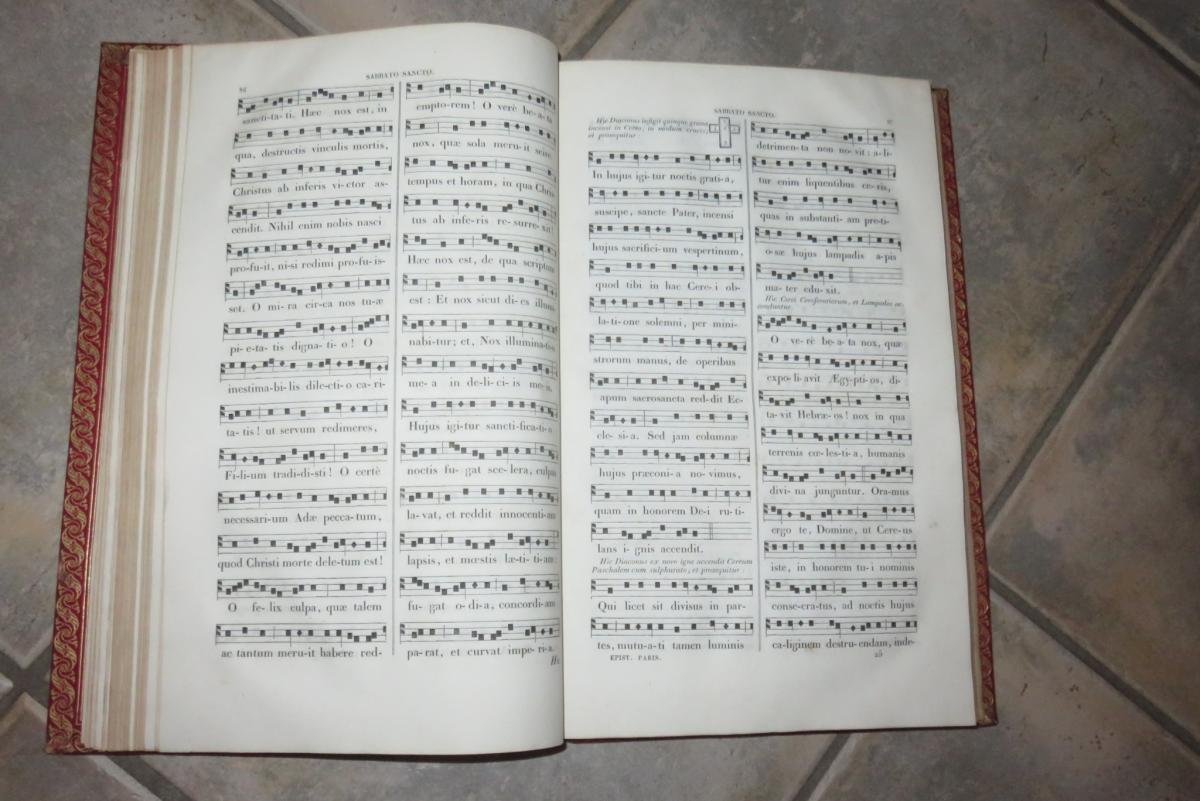 SABBATO SANCTO.
sancti-ta-ti. Hæc nox est, in
qua, destructis vinculis mortis,
Christus ab inferis vi-ctor as-
cendit. Nihil enim nobis nasci
pro-fu-it, ni-si redimi pro-fu-is-
set. O mi-ra cir-ca nos tu-æ
pi-e-ta-tis digna-ti-o! O
inestima-bi-lis dile-cti-o ca-ri-
ta-tis! ut servum redimeres,
Fi-li-um tradi-di-sti! O certè
necessari-um Adæ pecca-tum,
quod Christi morte dele-tum est!
O fe-lix culpa, quæ talem
ac tantum meru-it habere red-
empto-rem! O verè be-a-ta
nox, quæ sola meru-it scire
tempus et horam, in qua Chris-
tus ab infe-ris re-surre-xit!
Hæc nox est, de qua scriptum
est: Et nox sicut di-es illum-
nabi-tur; et, Nox illumina-ti-o
me-a in de-li-ci-is me-is.
Hujus igi-tur sancti-fica-ti-o
noctis fu-gat sce-lera, culpas
la-vat, et reddit innocenti-am
lapsis, et mœstis læ-ti-ti-am:
fu-gat o-di-a, concordi-am
pa-rat, et curvat impe-ri-a.
SABBATO SANCTO.
Hìc Diaconus infigit quinque grana
incensi in Cereo, in modum crucis,
et prosequitur:
In hujus igi-tur noctis grati-a,
suscipe, sancte Pater, incensi
hujus sacrifici-um vespertinum,
quod tibi in hac Cere-i ob-
la-ti-one solemni, per mini-
strorum manus, de operibus
apum sacrosancta red-dit Ec-
cle-si-a. Sed jam columnæ
hujus præconi-a no-vimus,
quam in honorem De-i ru-ti-
lans i-gnis accendit.
Hìc Diaconus ex novo igne accendit Cereum
Paschalem cum sulphurato, et prosequitur:
Qui licet sit divisus in par-
tes, mutu-a-ti tamen luminis
EPIST. PARIS.
detrimen-ta non no-vit: a-li-
tur enim liquentibus ce-ris,
quas in substanti-am pre-ti-
o-sæ hujus lampadis a-pis
ma-ter edu-xit.
Hìc Cerei Ceroferariorum, et Lampades ac-
cenduntur.
O ve-rè be-a-ta nox, quæ
expo-li-avit Ægy-pti-os, di-
ta-vit Hebræ-os! nox in qua
terrenis cœ-les-ti-a, humanis
divi-na junguntur. Ora-mus
ergo te, Domine, ut Cere-us
iste, in honorem tu-i nominis
conse-cra-tus, ad noctis hujus
ca-liginem destru-endam, inde-
25